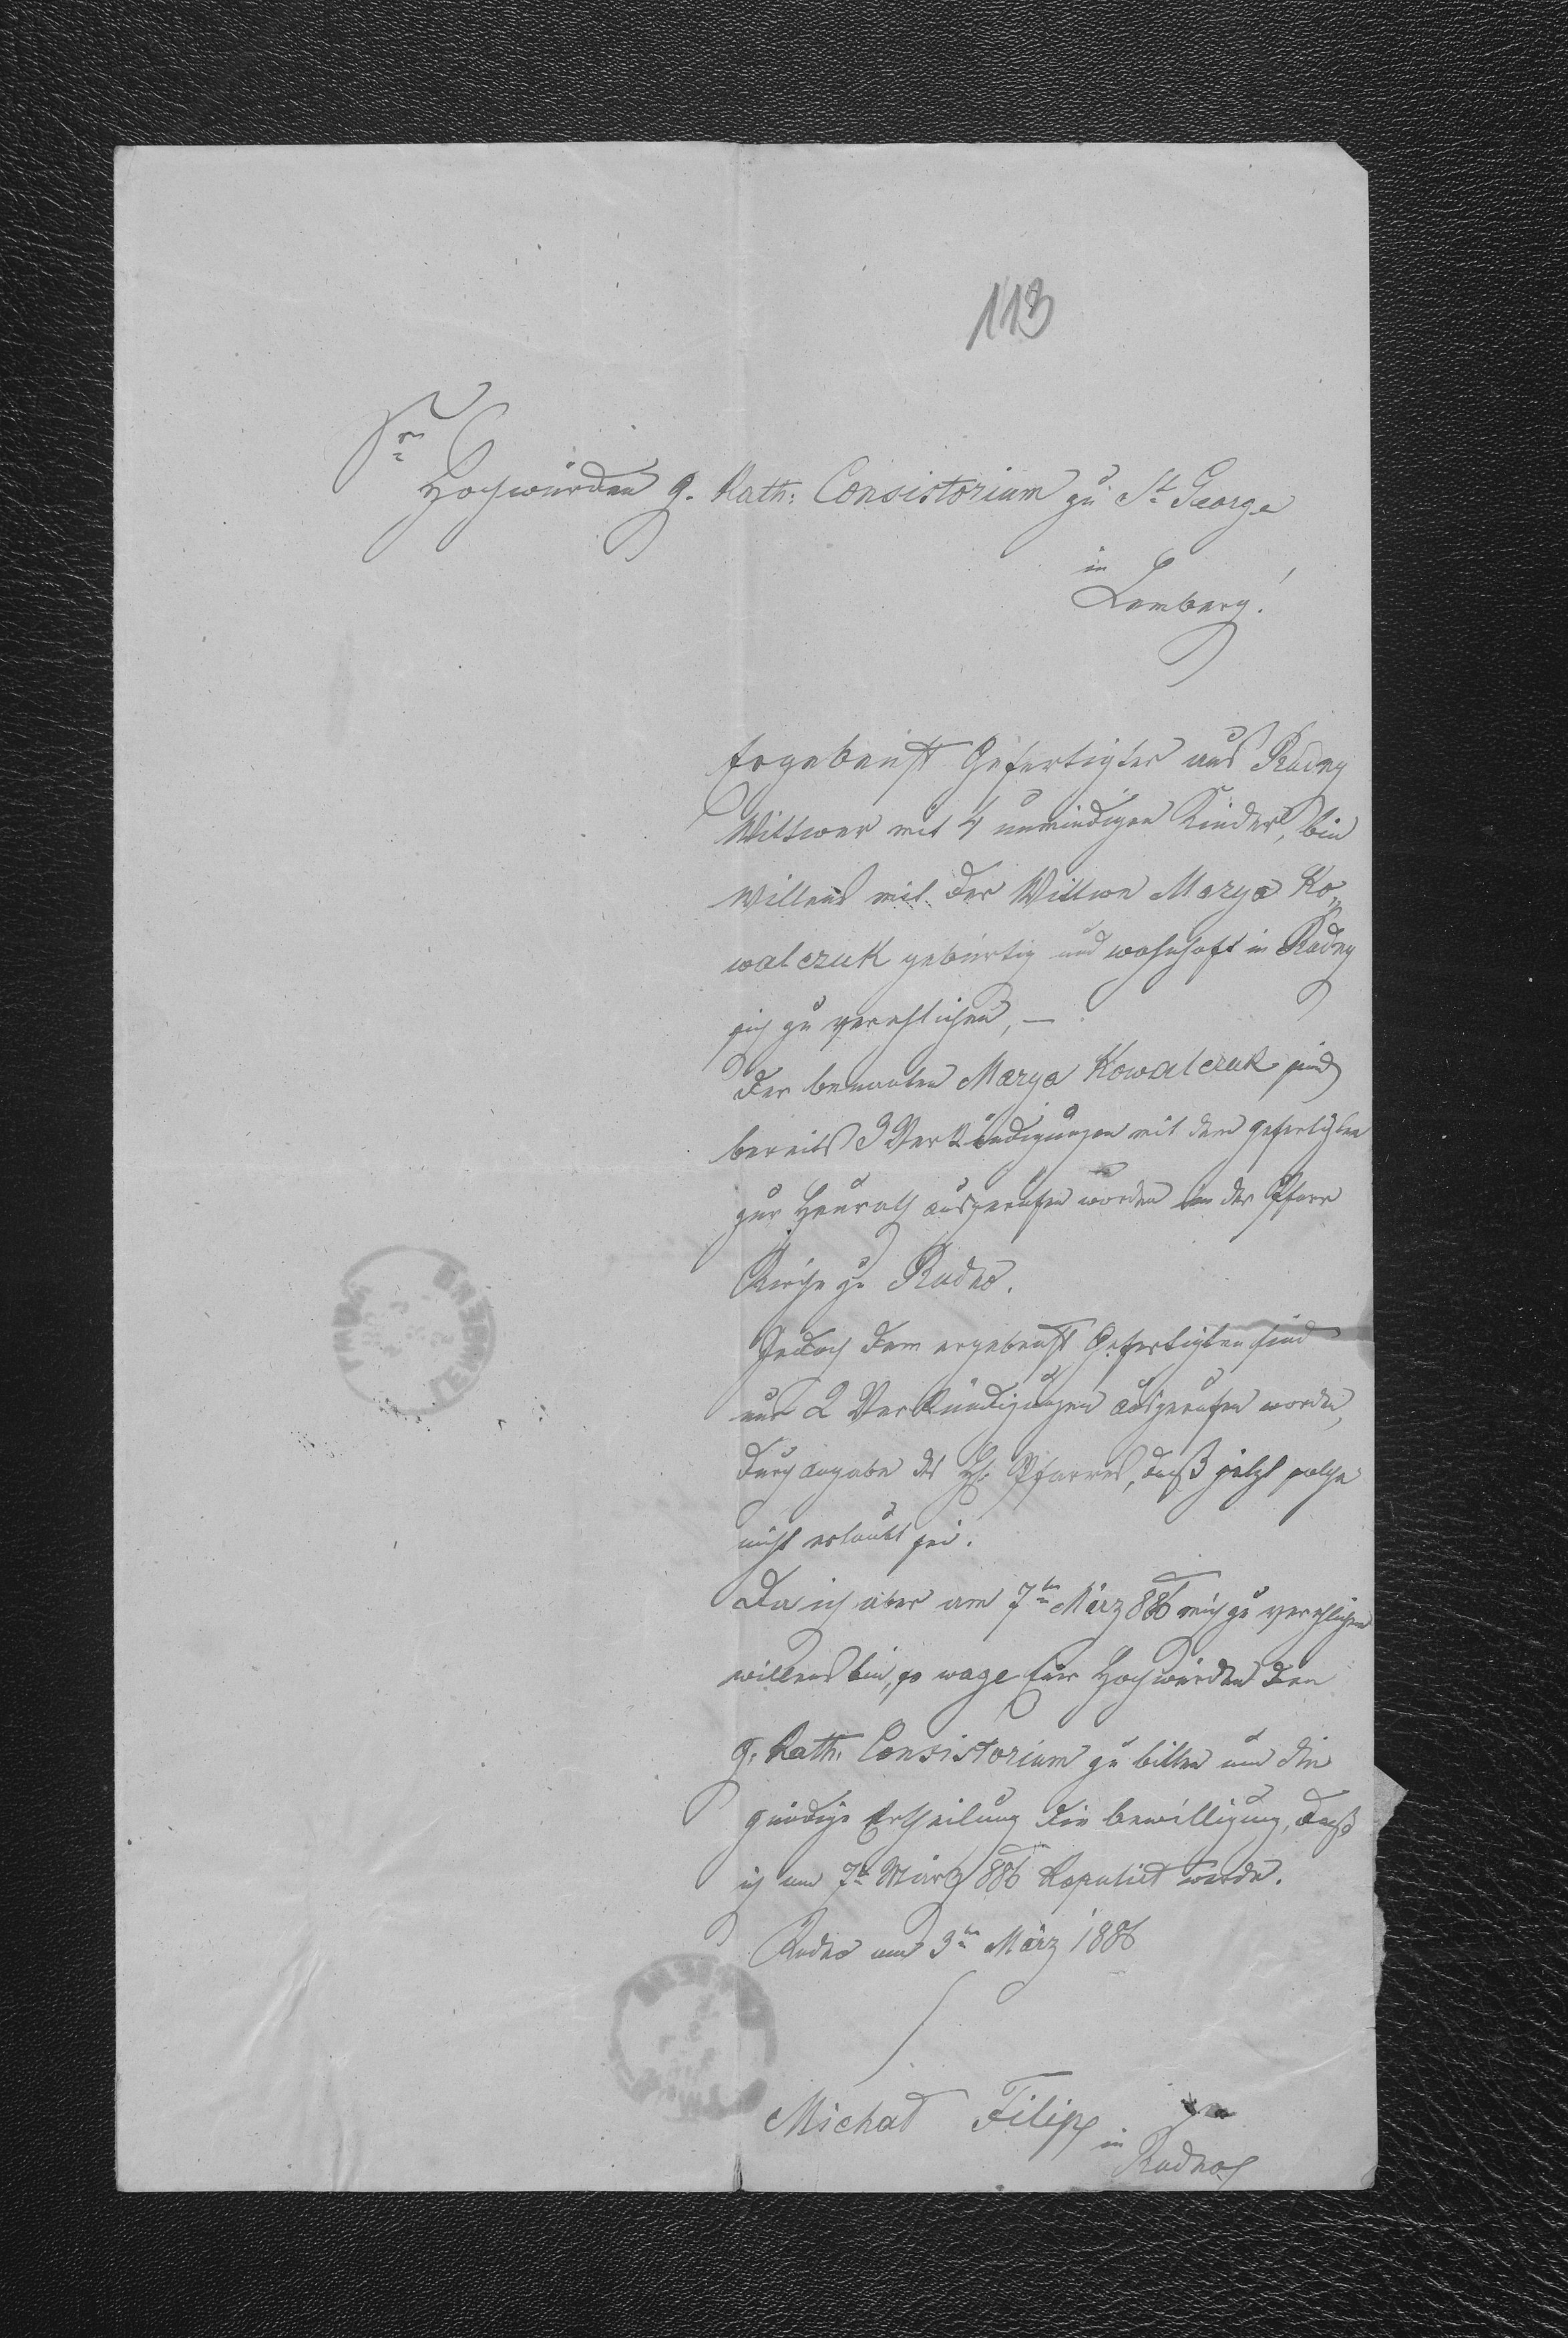 113
Sr
Hochwürden g. Kath: Consistorium zu St George
in
Lemberg!
Ergebenst Gefertigter aus Rudny
Wittwer mit 4 unmündigen Kinder, bin
willens mit der Wittwe Marya Ko„
walczuk gebürtig und wohnhaft in Rudny
sich zu verehlichen, —
Der benanten Marya Kowalczuk sind
bereits 3 Verkündigungen mit dem gefertigten
zur Heurath ausgerufen worden in der Pfarr
Kirche zu Rudno.
Jedoch dem ergebenst Gefertigten sind
nur 2 Verkündigungen ausgerufen worden,
durch angabe des H: Pfarrers, daß jetzt solche
nicht erlaubt sei.
Da ich aber am 7ten März 886 mich zu verehlichen
willens bin, so wage Euer Hochwürden den
g. Kath. Consistorium zu bitten um die
gnädige Ertheilung die bewilligung, daß
ich am 7t März 886 Kopulirt werde.
Rudno am 3ten März 1886
Michał Filipp
in
Rudno
LEMBERG
LEMBERG